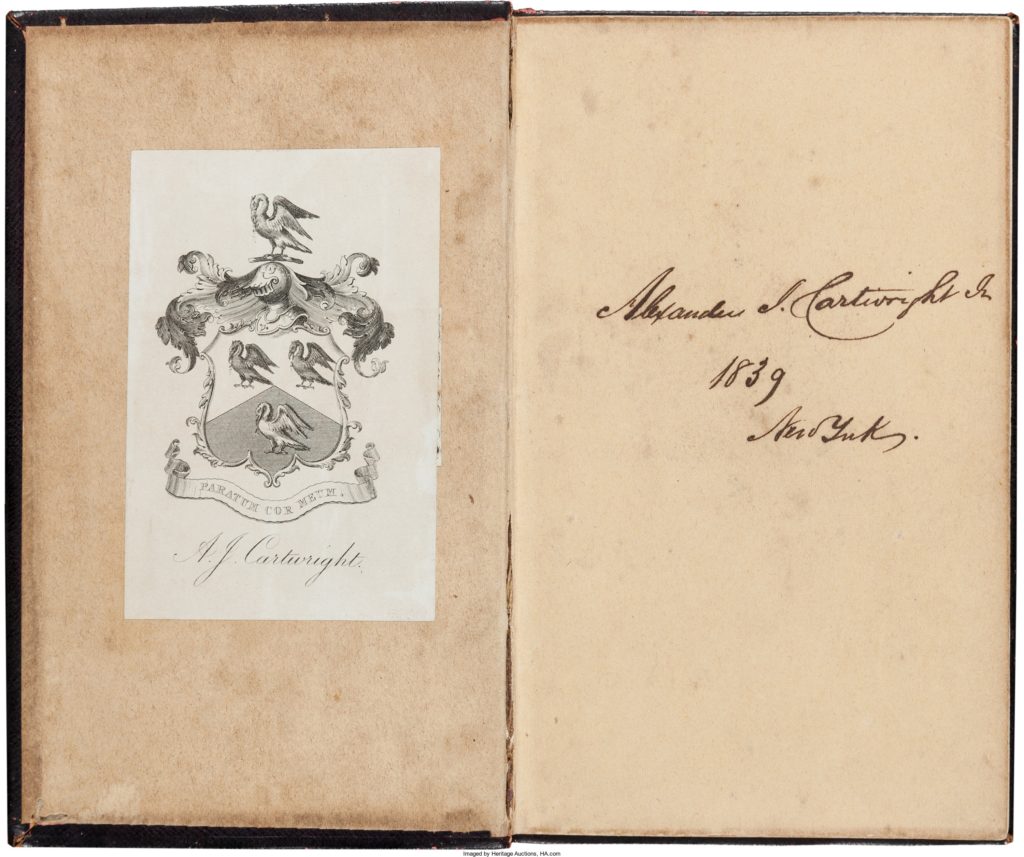 PARATUM COR MEUM.
A. J. Cartwright.
Alexander J. Cartwright Jr
1839
New York.
Imaged by Heritage Auctions, HA.com